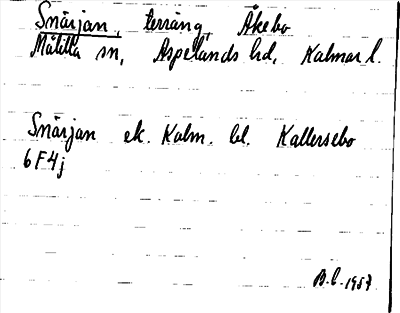 Snärjan, terräng, Åkebo
Målilla sn, Aspelands hd, Kalmar l.
Snärjan ek. Kalm. bl. Kallersebo
6F4j
B.C. 1957